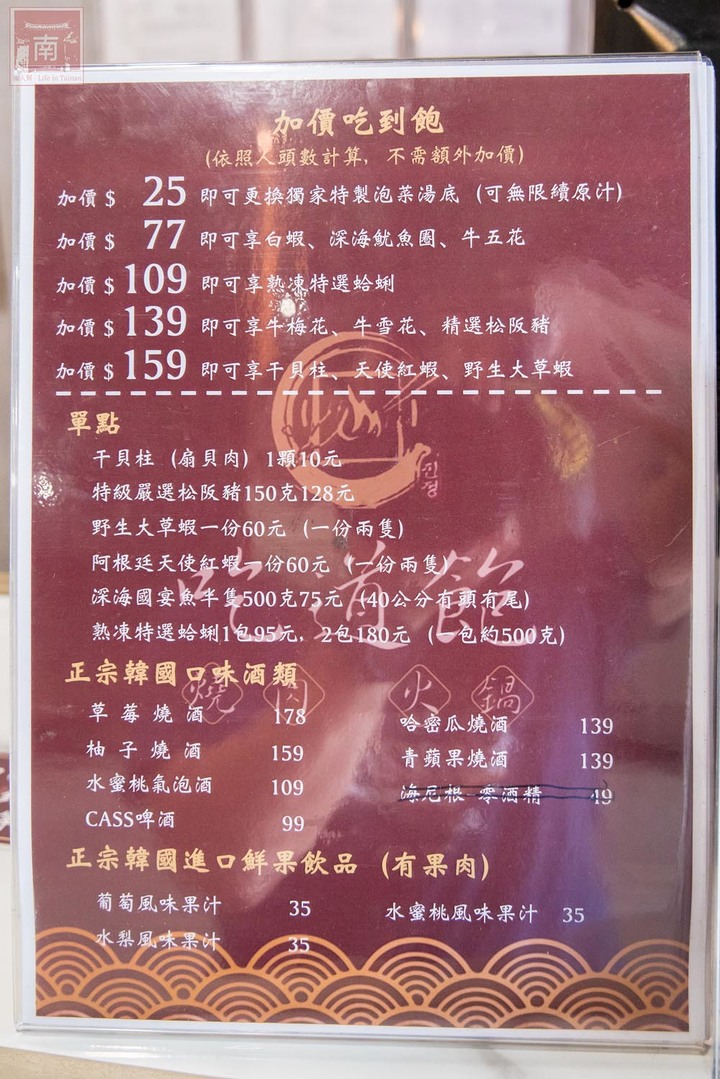 南
懶人南 Life in Tainan
加價吃到飽
(依照人頭數計算, 不需額外加價)
加價$ 25 即可更換獨家特製泡菜湯底 (可無限續原汁)
加價$ 77 即可享白蝦、深海魷魚圈、牛五花
加價$ 109 即可享熟凍特選蛤蜊
加價$ 139 即可享牛梅花、牛雪花、精選松阪豬
加價$ 159 即可享干貝柱、天使紅蝦、野生大草蝦
單點
干貝柱 (扇貝肉) 1顆10元
진정
特級嚴選松阪豬150克128元
野生大草蝦一份60元 (一份兩隻)
阿根廷天使紅蝦一份60元 (一份兩隻)
吃道飽
深海國宴魚半隻500克75元 (40公分有頭有尾)
熟凍特選蛤蜊1包95元, 2包180元 (一包約500克)
正宗韓國口味酒類
燒肉火鍋
草莓燒酒 178
哈密瓜燒酒 139
柚子燒酒 159
青蘋果燒酒 139
水蜜桃氣泡酒 109
海尼根 零酒精 49
CASS啤酒 99
正宗韓國進口鮮果飲品 (有果肉)
葡萄風味果汁 35
水蜜桃風味果汁 35
水梨風味果汁 35